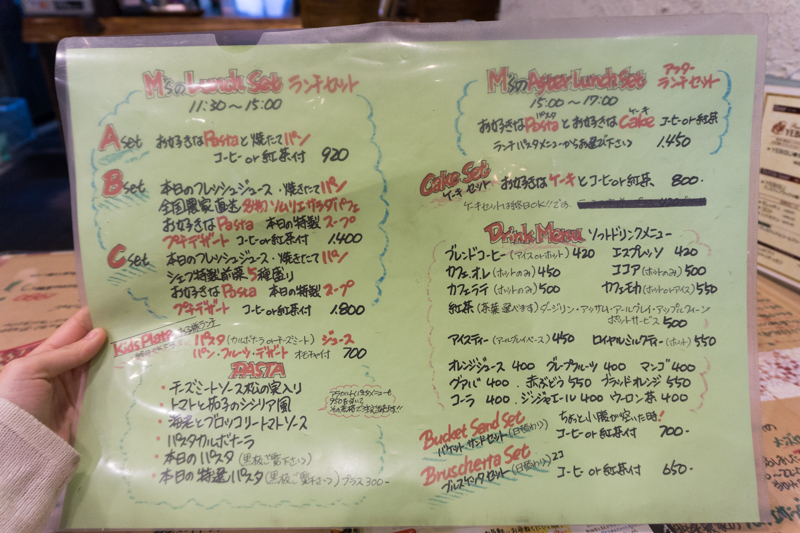 M'sのLunch Set ランチセット
11:30〜15:00
A set お好きなPastaと焼たてパン
コーヒーor紅茶付 920
B set 本日のフレッシュジュース・焼きたてパン
全国農家直送 名物ソムリエサラダパフェ
お好きなPasta 本日の特製スープ
プチデザート コーヒーor紅茶付 1.400
C set 本日のフレッシュジュース・焼きたてパン
シェフ特製前菜5種盛り
お好きなPasta 本日の特製スープ
プチデザート コーヒーor紅茶付 1.800
Kids Plate パスタ(カルボナーラorチーズミート) ジュース
パン・フルーツ・デザート オモチャ付 700
PASTA
・チーズミートソース松の実入り
・トマトと茄子のシシリア風
・海老とブロッコリートマトソース
・パスタカルボナーラ
・本日のパスタ(黒板ご覧下さい)
・本日の特選パスタ(黒板ご覧下さい)プラス300-
M'sのAfter Lunch Set アフターランチセット
15:00〜17:00
お好きなPastaパスタとお好きなCakeケーキ コーヒーor紅茶
ランチパスタメニューからお選び下さい 1.450
Cake Set ケーキセット お好きなケーキとコーヒーor紅茶 800-
ケーキセットは終日OK!!です。
Drink Menu ソフトドリンクメニュー
ブレンドコーヒー(アイスorホット) 420 エスプレッソ 420
カフェオレ(ホットのみ) 450 ココア(ホットのみ) 500
カフェラテ(ホットのみ) 500 カフェモカ(ホットorアイス) 550
紅茶(茶葉選べます)ダージリン・アッサム・アールグレイ・アップル・クィーン
ホットサービス 500
アイスティー(アールグレイベース) 450 ロイヤルミルクティー(ホット) 550
オレンジジュース 400 グレープフルーツ 400 マンゴ 400
グァバ 400. 赤ぶどう 550 ブラッドオレンジ 550
コーラ 400. ジンジャエール 400 ウーロン茶 400
Bucket Sand Set ちょっと小腹が空いた時!
バケットサンドセット(日替わり) コーヒーor紅茶付 700-
Bruscherta Set 2コ
ブルスケッタセット(日替わり) コーヒーor紅茶付 650-